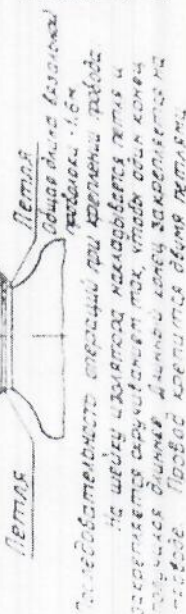 Петля
Петля
Общая длина вязальной
проволоки - 1,6м
Последовательность операций при креплении провода.
На шейку изолятора накладывается петля и
закрепляется скручиванием так, чтобы один конец
получился длиннее. Длинный конец закрепляется на
проводе. Провод крепится двумя петлями.